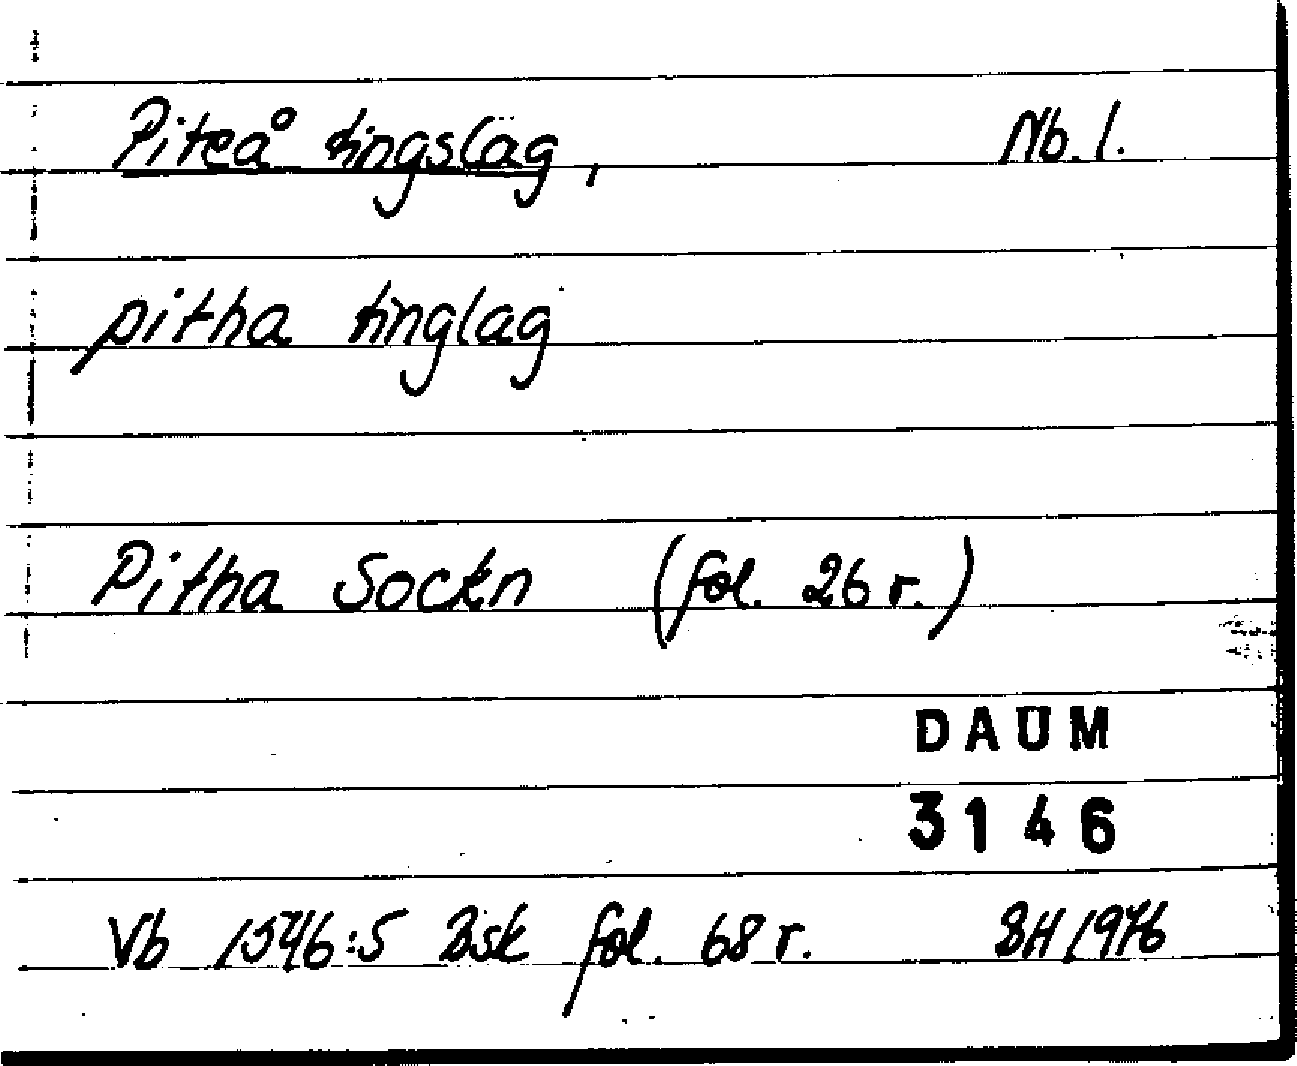 Piteå tingslag, Nb. l.
pitha tinglag
Pitha Sockn (fol. 26 r.)
DAUM
3146
Vb 1546:5 Bsk fol. 68 r. BH 1976